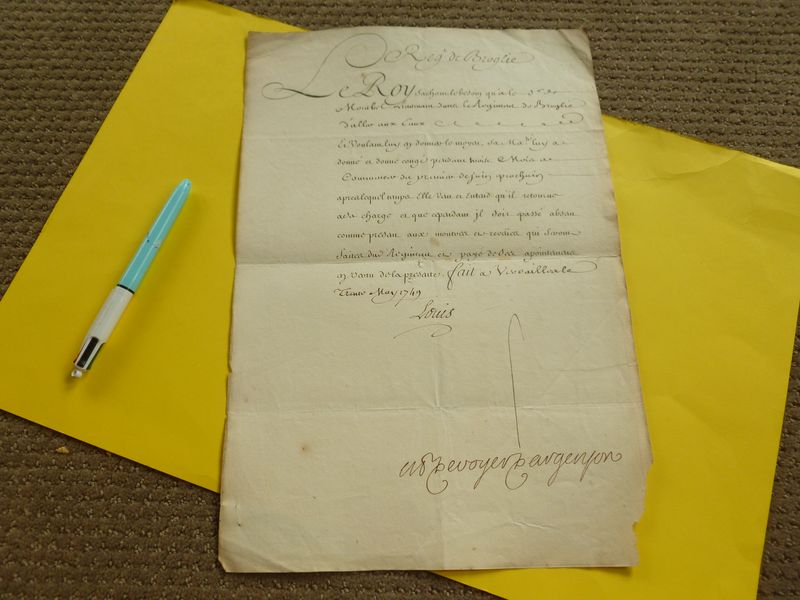 Reg.t de Broglie
Le Roy Sachant le besoin qu'a le S.r de
dans le Regiment de Broglie
d'aller aux Eaux
Et Voulant luy en donner le moyen, Sa Ma.té luy a
donné et donne congé pendant trois Mois a
Commencer du premier de juin prochain
apres lequel temps Elle Veut et Entend qu'il retourne
a sa charge et que cependant jl soit passé absent
comme present aux montres et reveües qui seront
faites dud Regiment et payé de ses apointemens
en Vertu de la presente. fait a Versailles le
Trente May 1749
Louis
M De voyer D'argenson